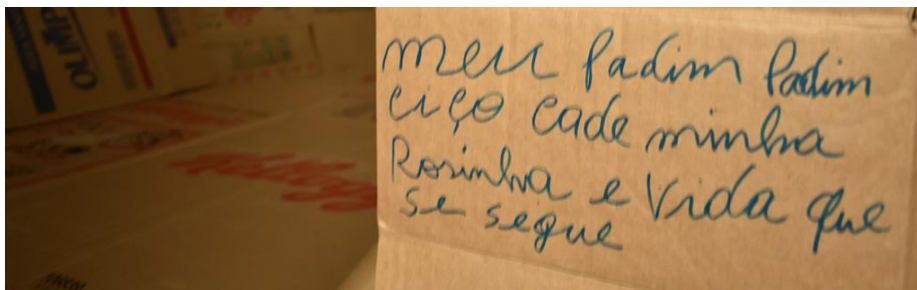 meu Padim Padim
ciço cade minha
Rosinha e vida que
se segue
OLMP